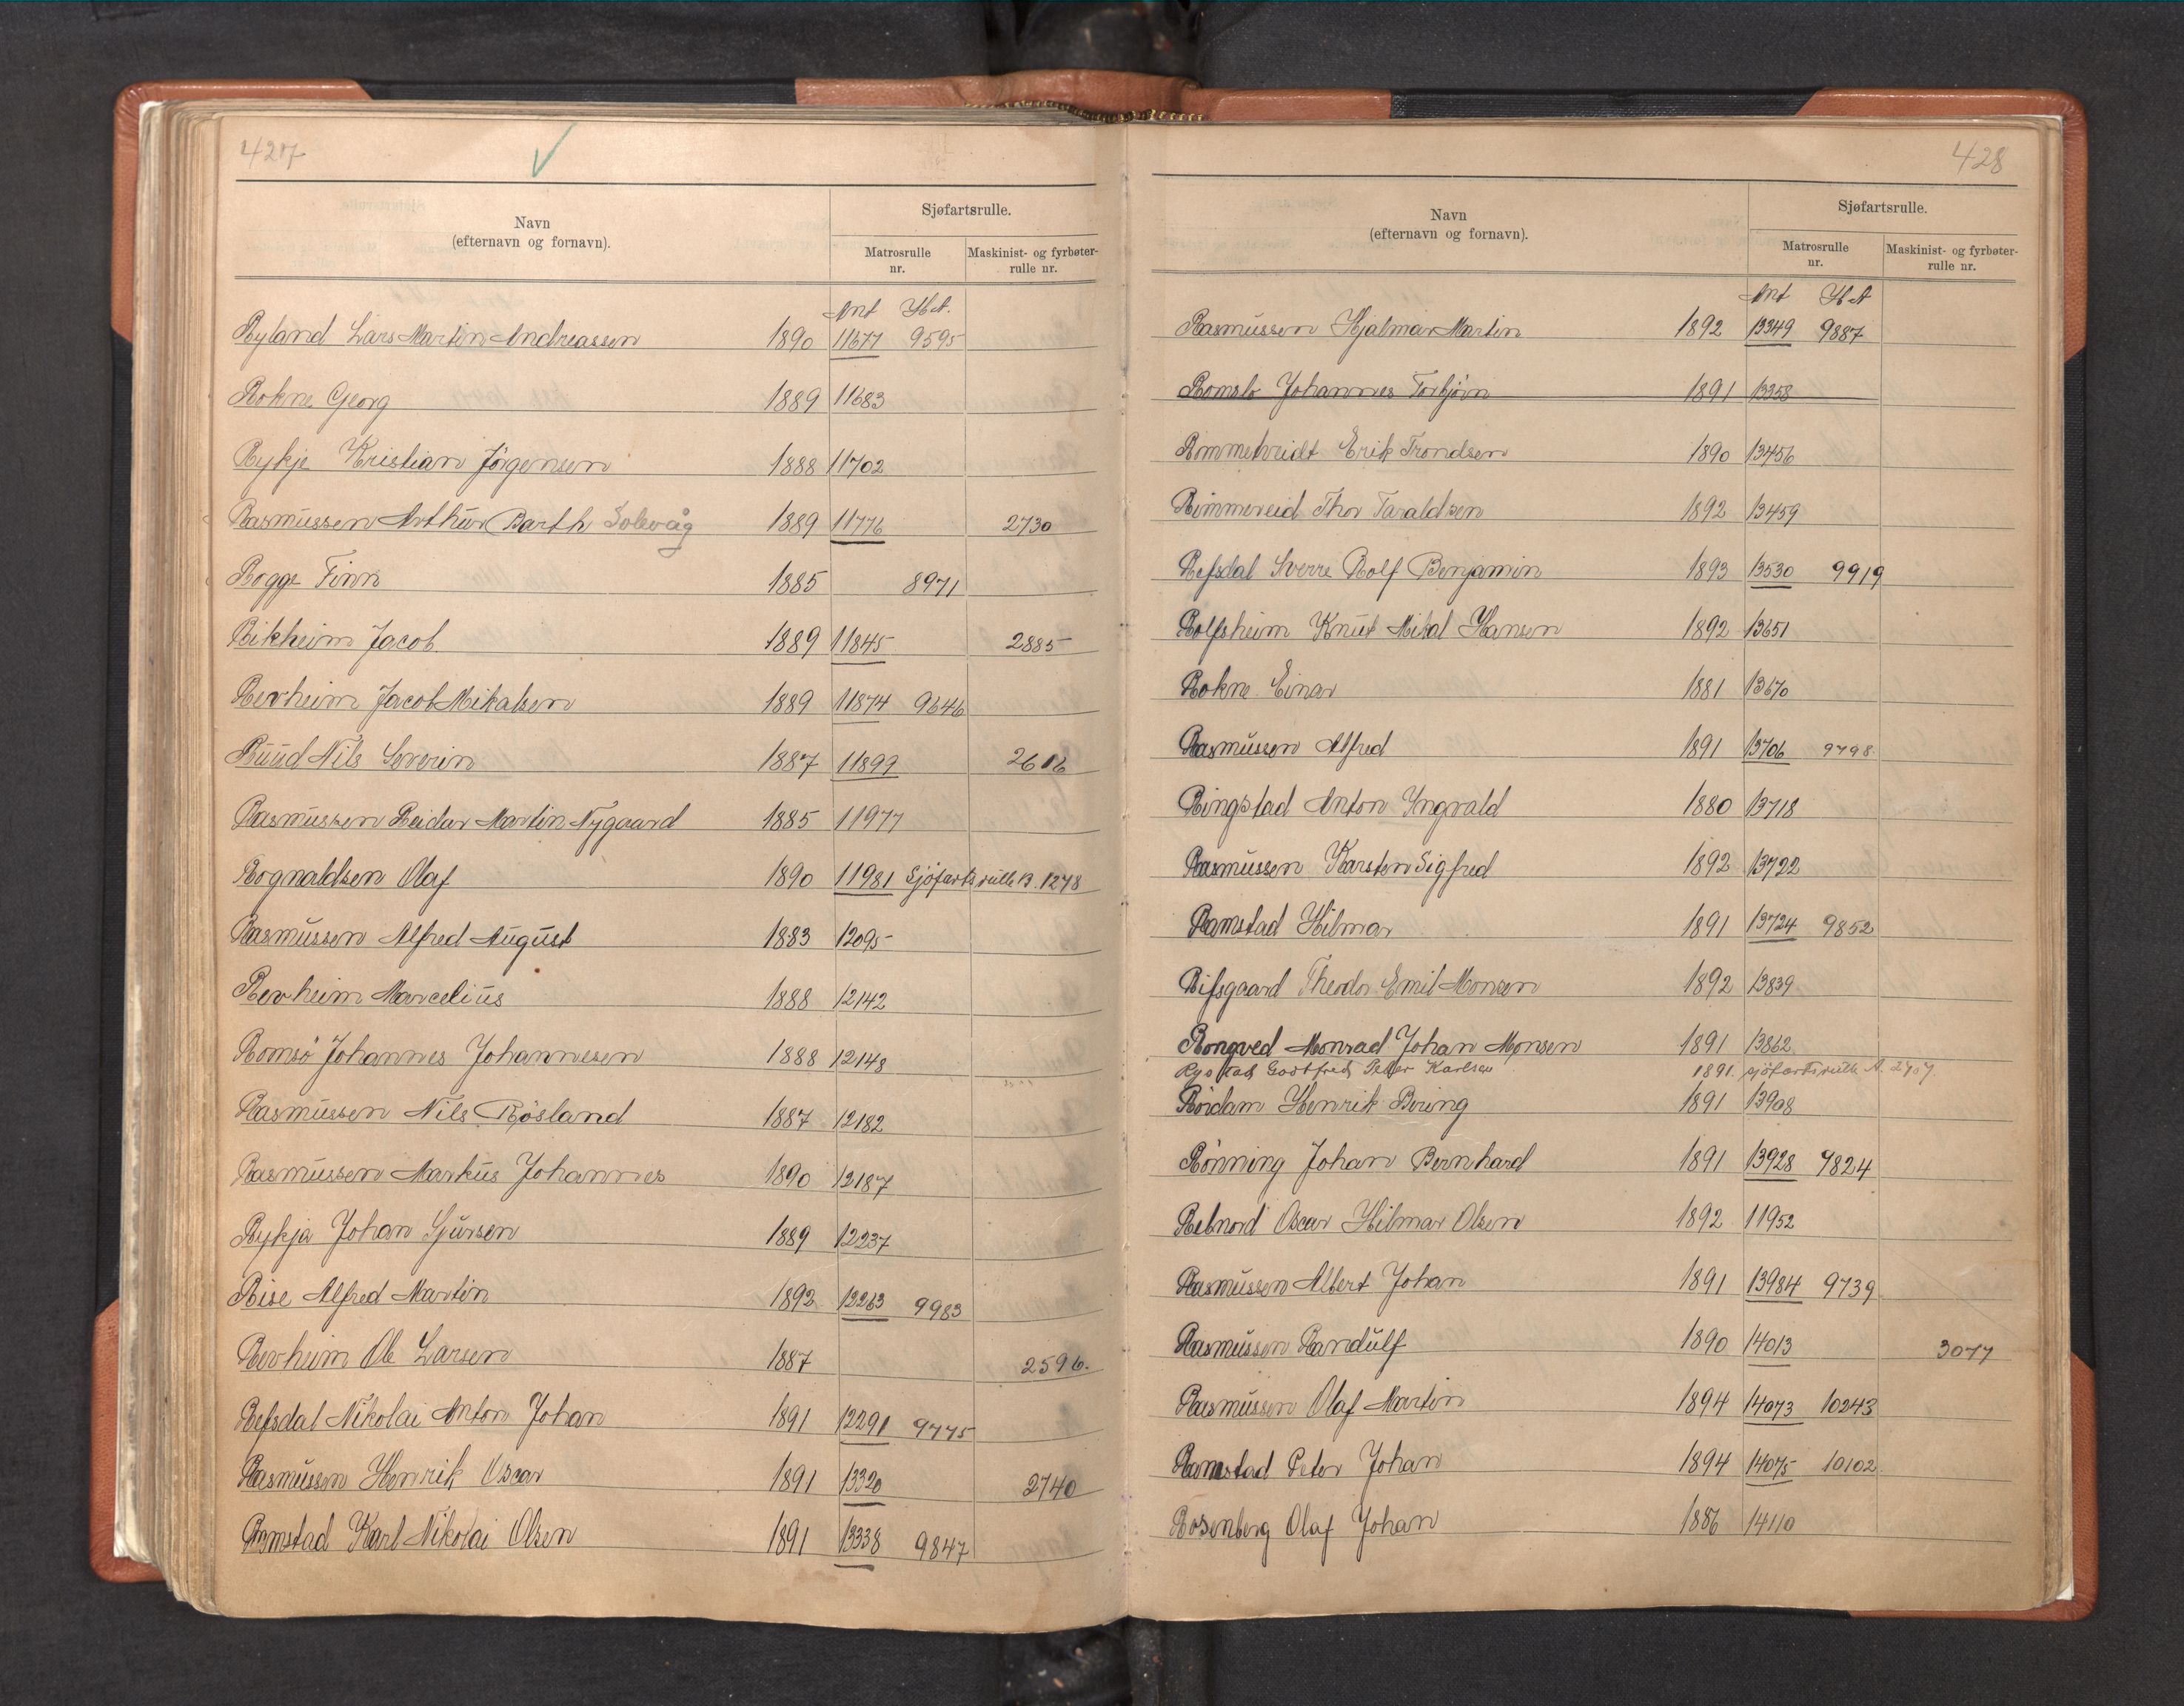 427
Navn
(efternavn og fornavn).
Sjøfartsrulle.
Matrosrulle
nr.
Maskinist- og fyrbøter-
rulle nr.
Ant
Ryland Lars Martin Andreassen 1890 11677 9595
Rokne Georg 1889 11683
Rykje Kristian Jörgensen 1888 11702
Rasmussen Arthur Barth Solevåg 1889 11776 2730
Rogge Finn 1885 8971
Rikheim Jacob 1889 11845 2885
Revheim Jacob Mikalsen 1889 11874 9646
Ruud Nils Severin 1887 11899 2616
Rasmussen Reidar Martin Nygaard 1885 11977
Rognaldsen Olaf 1890 11981 Sjöfartsrulle B. 1278
Rasmussen Alfred August 1883 12095
Revheim Marcelius 1888 12142
Romsö Johannes Johannesen 1888 12148
Rasmussen Nils Rösland 1887 12182
Rasmussen Markus Johannes 1890 12187
Rykja Johan Sjursen 1889 12237
Rise Alfred Martin 1892 12263 9983
Revheim Ole Larsen 1887 2596.
Refsdal Nikolai Anton Johan 1891 12291 9775
Rasmussen Henrik Oscar 1891 13320 2740
Ramstad Karl Nikolai Olsen 1891 13338 9847
428
Navn
(efternavn og fornavn).
Sjøfartsrulle.
Matrosrulle
nr.
Maskinist- og fyrbøter-
rulle nr.
Ant
Rasmussen Hjalmar Martin 1892 13349 9887
Romslo Johannes Torbjörn 1891 13358
Rommetveidt Erik Trondsen 1890 13456
Rimmereid Thor Taraldsen 1892 13459
Refsdal Sverre Rolf Benjamin 1893 13530 9919
Rolfsheim Knut Mikal Hansen 1892 13651
Rokne Einar 1881 13670
Rasmussen Alfred 1891 13706 9798
Ringstad Anton Yngvald 1880 13718
Rasmussen Karsten Sigfred 1892 13722
Ramstad Hilmar 1891 13724 9852
Rifsgaard Theodor Emil Monsen 1892 13839
Rongved Monrad Johan Monsen 1891 13862
Rystad Godtfred Peder Karlsen 1891. sjöfartsrulle A. 2707
Rördam Henrik Bering 1891 13908
Rönning Johan Bernhard 1891 13928 9824
Rebnord Oscar Hilmar Olsen 1892 11952
Rasmussen Albert Johan 1891 13984 9739
Rasmussen Randulf 1890 14013 3077
Rasmussen Olaf Martin 1894 14073 10243
Ramstad Peter Johan 1894 14075 10102
Rosenberg Olaf Johan 1886 14110